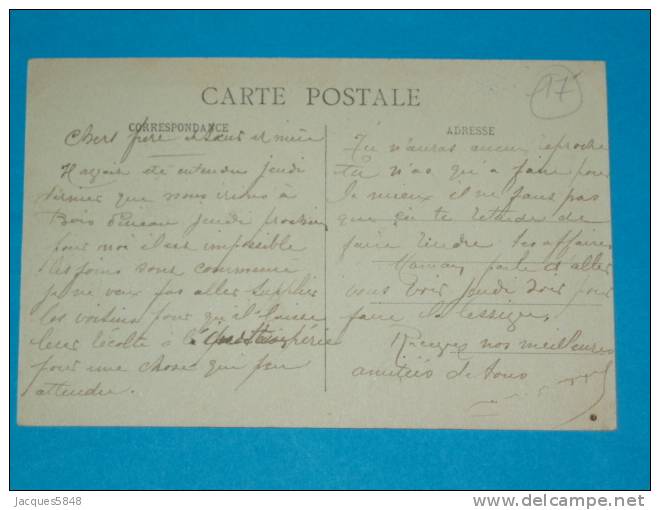 CARTE POSTALE
17
CORRESPONDANCE
Chers frère et Sœur et nièce
ayant été entendu jeudi
dernier que nous irions à
Bois jeudi prochain
pour moi il est impossible
les foins sont commencé
je ne veux pas aller supplier
les voisins pour qu'il laisse
leur récolte à
pour une chose que peu
attendre.
ADRESSE
Tu n'auras aucun reproche
tu n'as qu'a faire pour
le mieux il ne faut pas
que ça te retarde de
faire rendre tes affaires
Maman parle d aller
vous voir jeudi soir pour
faire la lessive,
Recevez nos meilleures
amitiés de tous
Jacques5848
delcampe.net